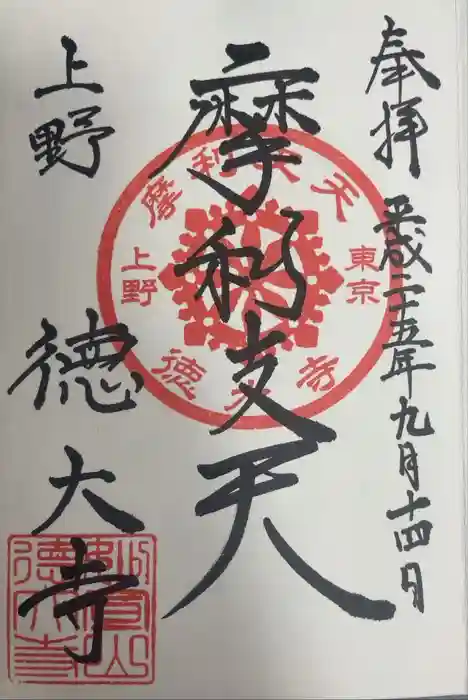 奉拝
平成二十五年九月十四日
摩利支天
上野
徳大寺
摩利支天
東京
上野
徳大寺